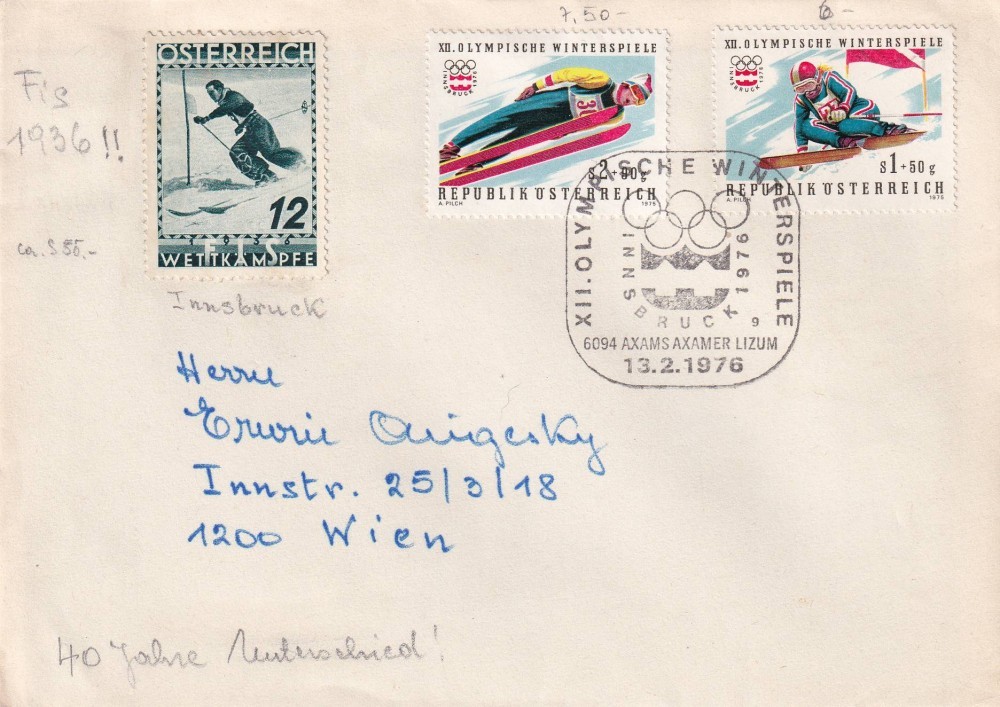 7,50-
6-
Fis
1936!!
ca. S 55.-
ÖSTERREICH
12
1936
FIS
WETTKÄMPFE
Innsbruck
XII. OLYMPISCHE WINTERSPIELE
INNSBRUCK 1976
S2+90g
REPUBLIK ÖSTERREICH
A. PILCH 1975
XII. OLYMPISCHE WINTERSPIELE
INNSBRUCK 1976
S1+50g
REPUBLIK ÖSTERREICH
A. PILCH 1975
XII. OLYMPISCHE WINTERSPIELE
INNSBRUCK 1976
9
6094 AXAMS AXAMER LIZUM
13.2.1976
Herrn
Erwin
Innstr. 25/3/18
1200 Wien
40 Jahre Unterschied!